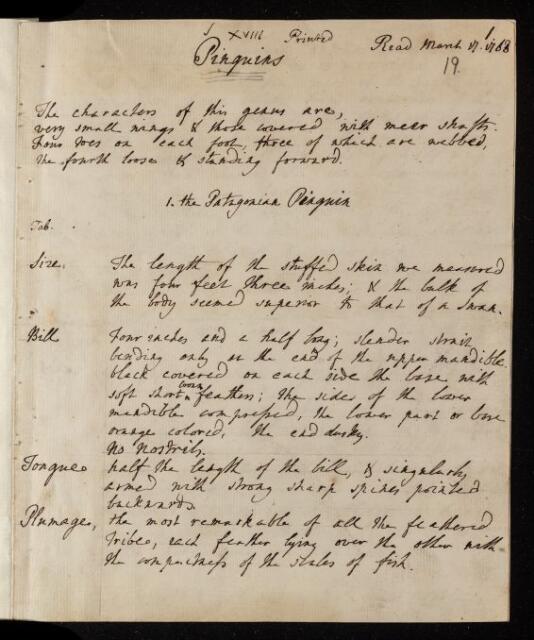 XVIII Printed
Read March 17. 1768
Pinguins
19.
The characters of this genus are,
very small wings & those covered with meer shafts.
Four toes on each foot, three of which are webbed,
the fourth loose & standing forward.
1. the Patagonian Pinguin
Tab.
Size. The length of the stuffed skin we measured
was four feet three inches; & the bulk of
the body seemed superior to that of a Swan.
Bill Four inches and a half long; slender strait
bending only at the end of the upper mandible.
black covered on each side the base with
soft short brown feathers; the sides of the lower
mandible compressed, the lower part or base
orange colored, the end dusky.
No Nostrils.
Tongue half the length of the bill, & singularly
armed with strong sharp spines pointed
backwards
Plumage, the most remarkable of all the feathered
tribe, each feather lying over the other with
the compactness of the scales of fish.